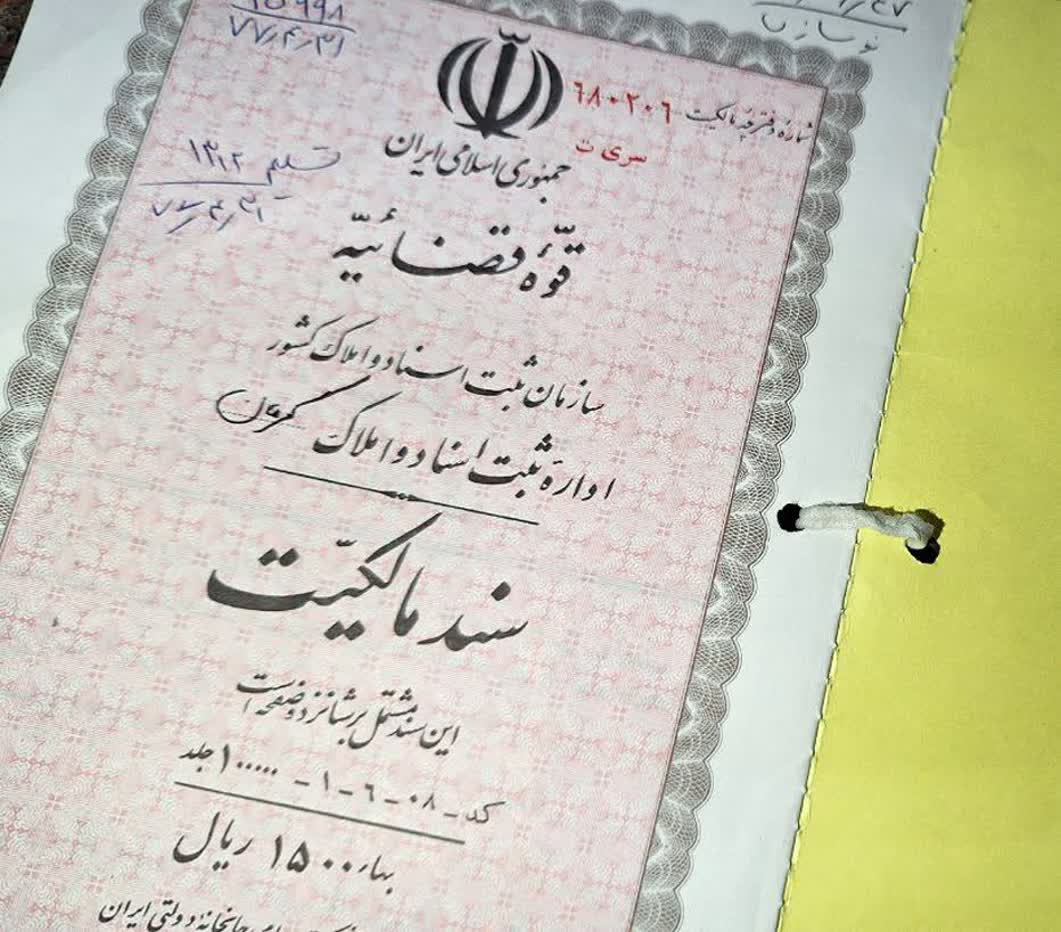 ۷۷/۴/۳۱
نوسازی
شماره دفترچه مالکیت ۶۸۰۲۰۶
سری ت
جمهوری اسلامی ایران
تسلیم ۱۳۱۲
۷۷/۴/۳۱
قوّهٔ قضائیّه
سازمان ثبت اسناد و املاک کشور
ادارهٔ ثبت اسناد و املاک
سند مالکیّت
این سند مشتمل بر شانزده صفحه است
کد ـ ۰۸ ـ ۶ ـ ۱ ـ ۱۰۰۰۰۰ جلد
بهاء ۱۵۰۰ ریال
چاپخانهٔ دولتی ایران